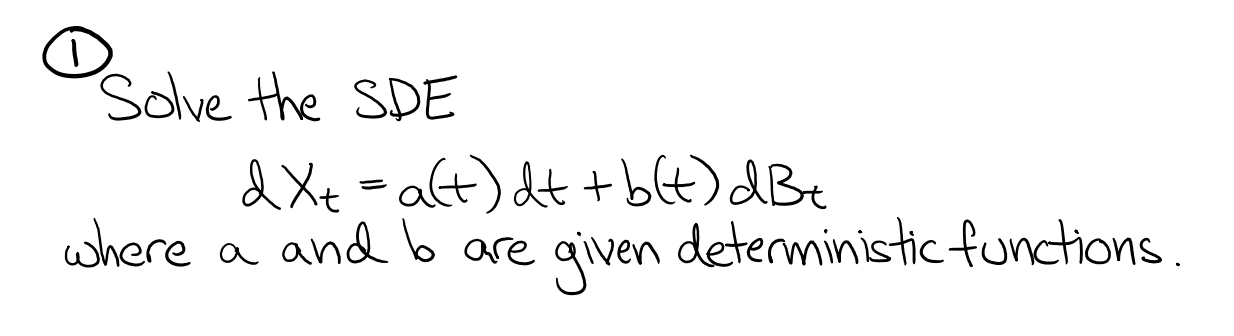 ①
Solve the SDE
dXₜ = a(t) dt + b(t) dBₜ
where a and b are given deterministic functions.